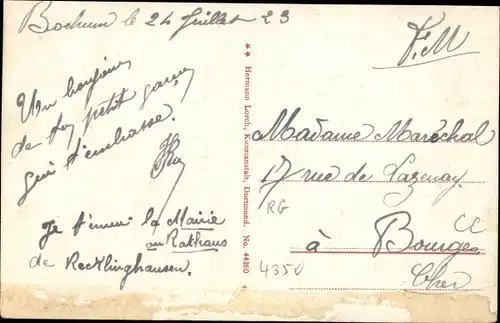 Bochum le 24 Juillet 23
F.M
Un bonjour
de ton petit garçon
qui t'embrasse.
Je t'envoie la Mairie
ou Rathaus
de Recklinghausen.
★★ Hermann Lorch, Kunstanstalt, Dortmund. No. 44360 ★
Madame Maréchal
17 rue de Lazenay.
RG
CC
à Bourges
4350
Cher